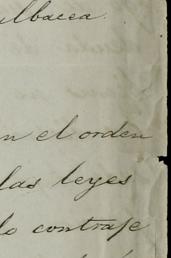 albacea.
n el orden
las leyes
lo contraje